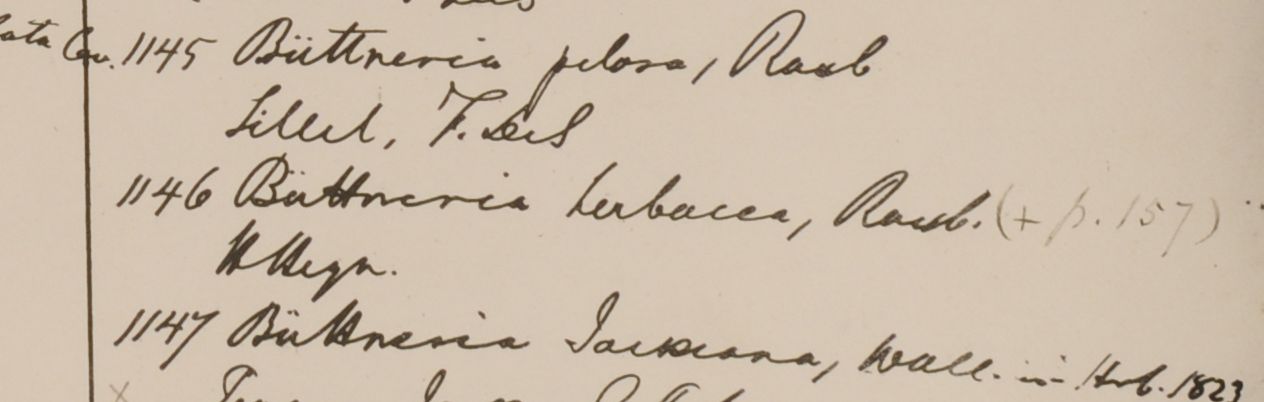 1145 Büttneria pilosa, Roxb
Sillet, F. De S
1146 Büttneria herbacea, Roxb. (+ p. 157)
H Heyn.
1147 Büttneria Jackiana, Wall. in Herb. 1823